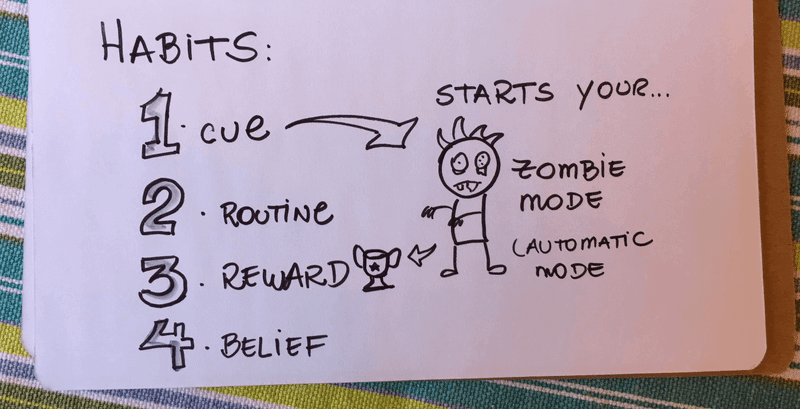 HABITS:
1. CUE
STARTS YOUR...
ZOMBIE
MODE
(AUTOMATIC
MODE
2. ROUTINE
3. REWARD
4. BELIEF